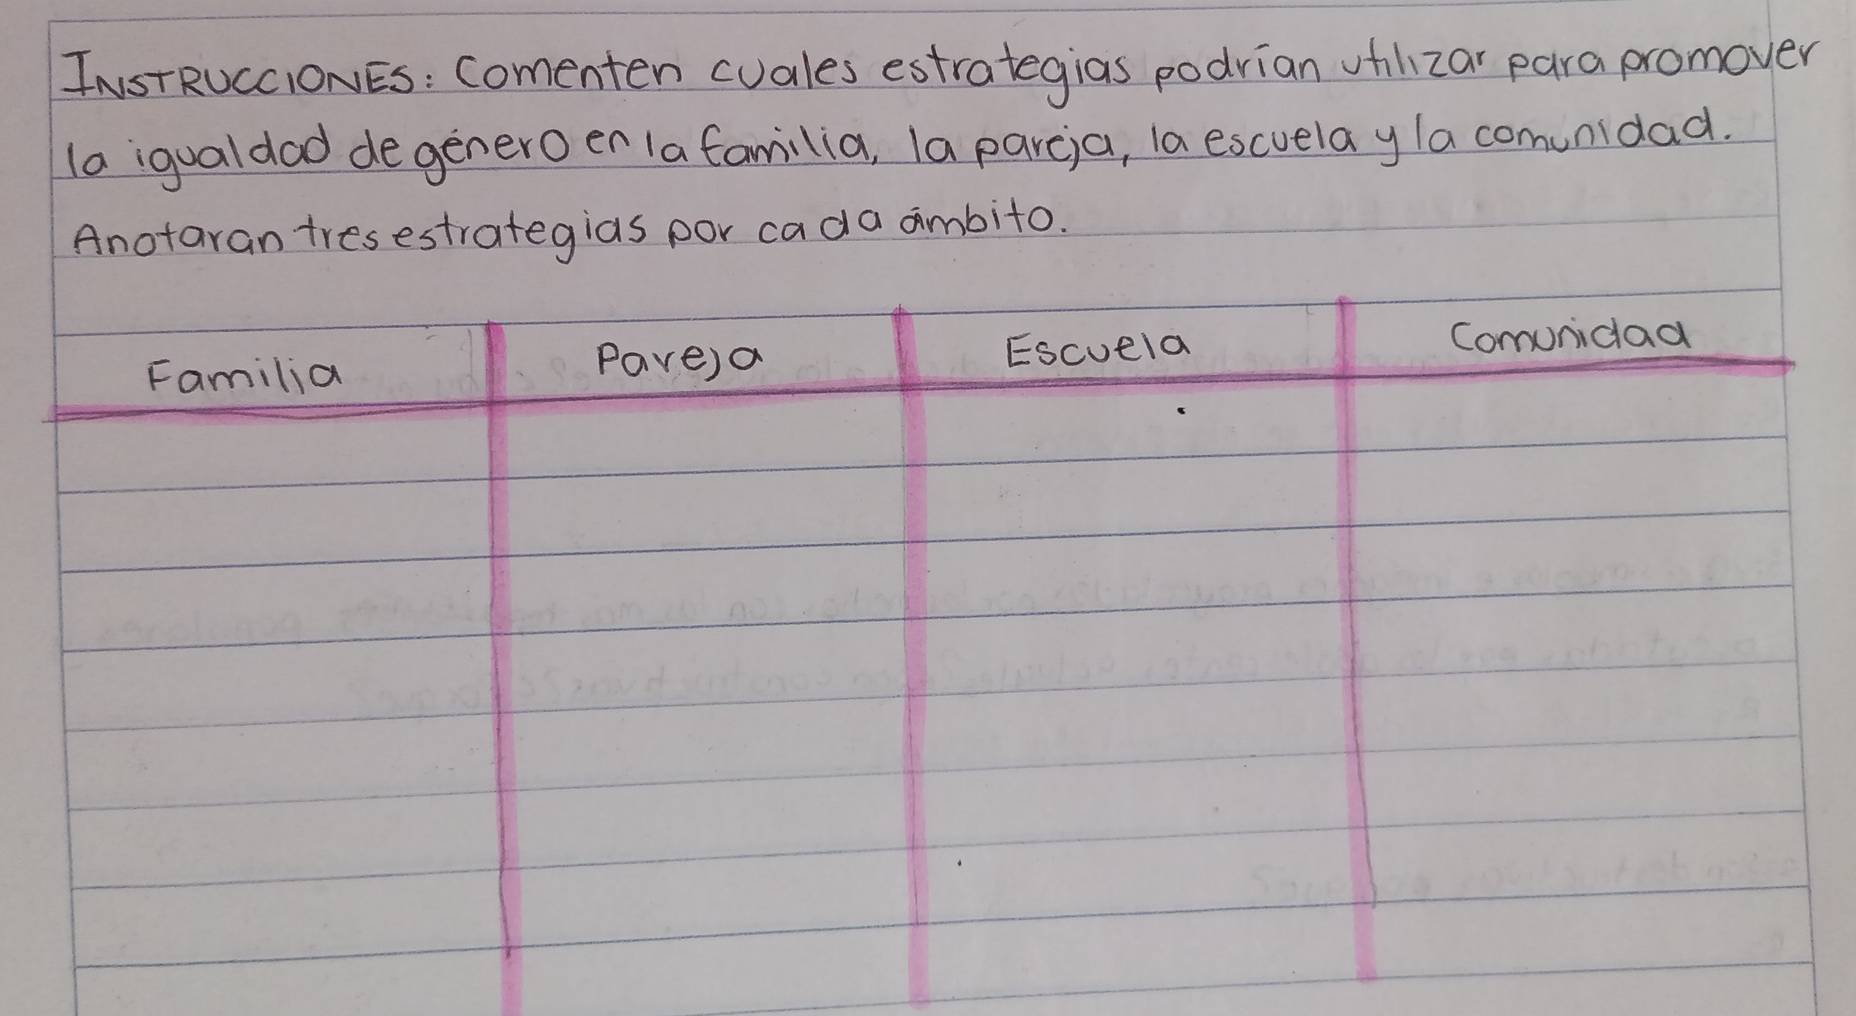 INSTRUCCIONES: Comenten cuales estrategias podrían utilizar para promover
la igualdad de género en la familia, la pareja, la escuela y la comunidad.
Anotaran tres estrategias por cada ámbito.
Familia Pareja Escuela Comunidad